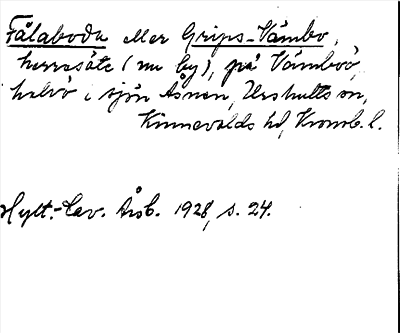 Fålaboda eller Grips-Vämbo,
herresäte (nu by), på Vämboö,
halvö i sjön Åsnen, Urshults sn,
Kinnevalds hd, Kronob. l.
Hylt.-Cav. Årsb. 1928, s. 24.